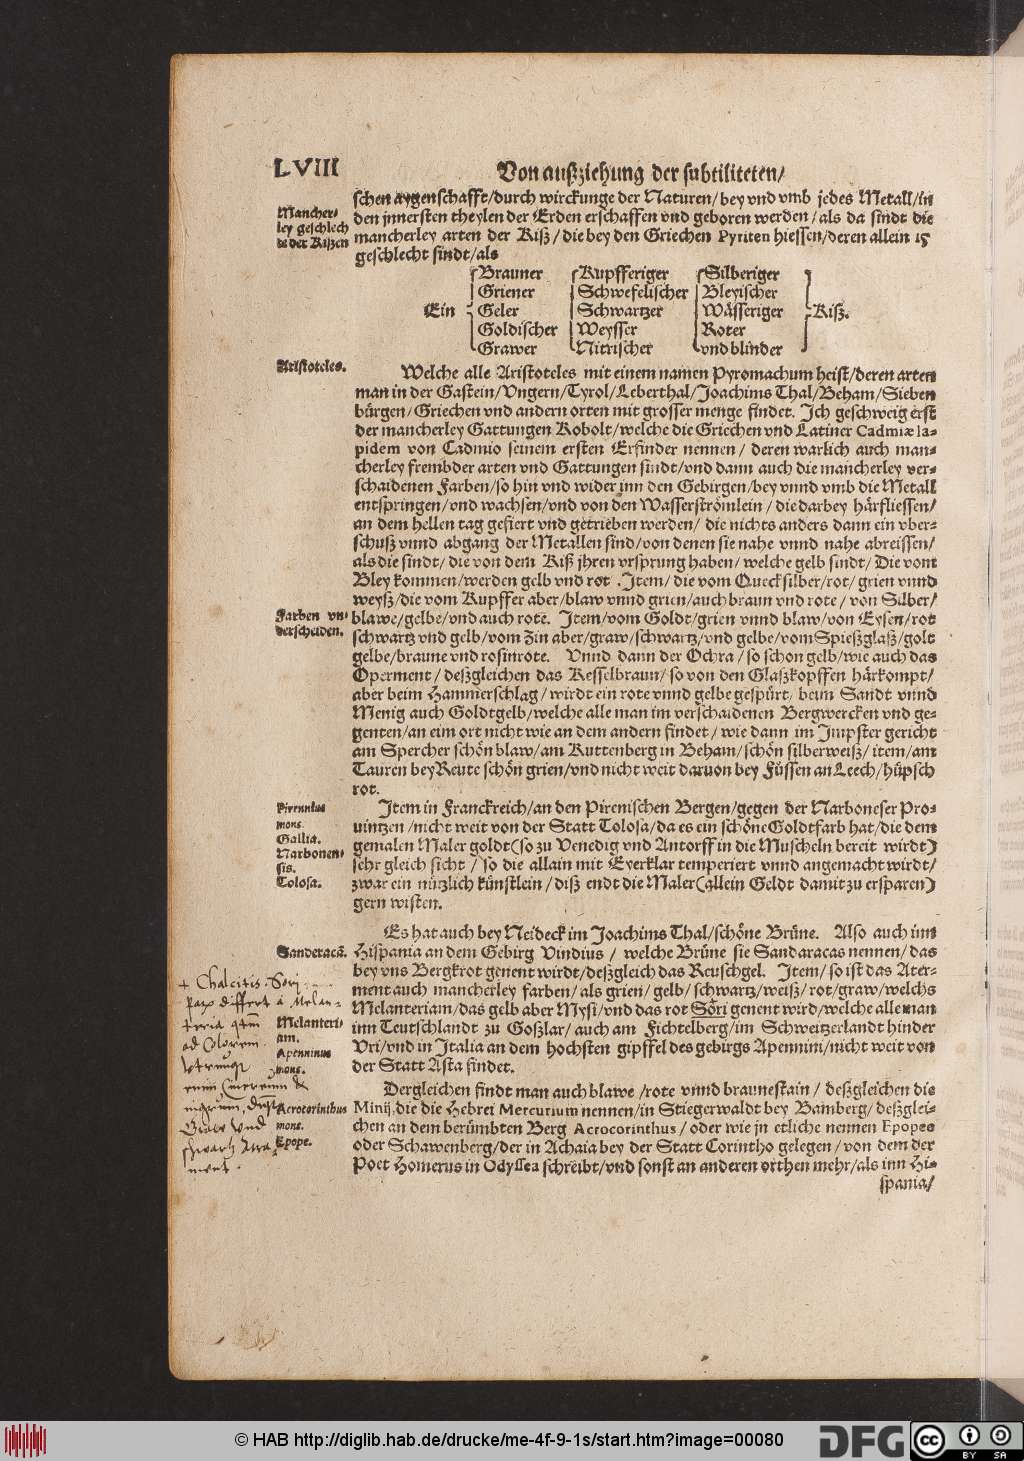 LVIII
Von außziehung der subtiliteten/
schen aygenschafft/durch wirckunge der Naturen/bey vnd vmb jedes Metall/in
Mancher-
ley geschlech
te der Kißen
den jnnersten theylen der Erden erschaffen vnd geboren werden/als da sindt die
mancherley arten der Kiß/die bey den Griechen Pyriten hiessen/deren allein 15
geschlecht sindt/als
Brauner Kupfferiger Silberiger
Griener Schwefelischer Bleyischer
Ein Geler Schwartzer Wässeriger Kiß.
Goldischer Weysser Roter
Grawer Nitrischer vnd blinder
Aristoteles.
Welche alle Aristoteles mit einem namen Pyromachum heist/deren arten
man in der Gastein/Vngern/Tyrol/Leberthal/Joachims Thal/Beham/Sieben
bürgen/Griechen vnd andern orten mit grosser menge findet. Ich geschweig erst
der mancherley Gattungen Kobolt/welche die Griechen vnd Latiner Cadmiæ la-
pidem von Cadmio seinem ersten Erfinder nennen/deren warlich auch man-
cherley frembder arten vnd Gattungen sindt/vnd dann auch die mancherley ver-
schaidenen Farben/so hin vnd wider jnn den Gebirgen/bey vnnd vmb die Metall
entspringen/vnd wachsen/vnd von den Wasserströmlein/die darbey härfliessen/
an dem hellen tag gefiert vnd getrieben werden/die nichts anders dann ein vber-
schuß vnnd abgang der Metallen sind/von denen sie nahe vnnd nahe abreissen/
als die sindt/die von dem Kiß jhren vrsprung haben/welche gelb sindt/Die vom
Bley kommen/werden gelb vnd rot. Item/die vom Quecksilber/rot/grien vnnd
weyß/die vom Kupffer aber/blaw vnnd grien/auch braun vnd rote/von Silber/
Farben vn-
derscheiden.
blawe/gelbe/vnd auch rote. Item/vom Goldt/grien vnnd blaw/von Eysen/rot
schwartz vnd gelb/vom Zin aber/graw/schwartz/vnd gelbe/vom Spießglaß/golt
gelbe/braune vnd rosinrote. Vnnd dann der Ochra/so schon gelb/wie auch das
Operment/deßgleichen das Kesselbraun/so von den Glaßkopffen härkompt/
aber beim Hammerschlag/wirdt ein rote vnnd gelbe gespürt/beim Sandt vnnd
Menig auch Goldtgelb/welche alle man im verschaidenen Bergwercken vnd ge-
genten/an eim ort nicht wie an dem andern findet/wie dann im Impster gericht
am Spercher schön blaw/am Kuttenberg in Beham/schön silberweiß/item/am
Tauren bey Reute schön grien/vnd nicht weit daruon bey Füssen an Leech/hüpsch
rot.
Pirennius
mons.
Gallia.
Narbonen-
sis.
Tolosa.
Item in Franckreich/an den Pirenischen Bergen/gegen der Narboneser Pro-
uintzen/nicht weit von der Statt Tolosa/da es ein schöne Goldtfarb hat/die dem
gemalen Maler goldt(so zu Venedig vnd Antorff in die Muscheln bereit wirdt)
sehr gleich sicht/so die allain mit Eyerklar temperiert vnnd angemacht wirdt/
zwar ein nützlich künstlein/diß endt die Maler(allein Geldt damit zu ersparen)
gern wisten.
Es hat auch bey Neideck im Joachims Thal/schöne Brüne. Also auch im
Sanderacā.
Hispania an dem Gebirg Vindius/welche Brüne sie Sandaracas nennen/das
bey vns Bergkrot genent wirdt/deßgleich das Reuschgel. Item/so ist das Ater-
ment auch mancherley farben/als grien/gelb/schwartz/weiß/rot/graw/welchs
Melanteriam/das gelb aber Mysi/vnd das rot Söri genent wird/welche alle man
Melanteri-
am.
Apenninus
mons.
inn Teutschlandt zu Goßlar/auch am Fichtelberg/im Schweitzerlandt hinder
Vri/vnd in Italia an dem hochsten gipffel des gebirgs Apennini/nicht weit von
der Statt Asta findet.
+ Chalcitis. Sorj
differt à Melan-
teria
ad Colorem.
Dergleichen findt man auch blawe/rote vnnd braune stain/deßgleichen die
Acrocorinthus
mons.
Epope.
Minij, die die Hebrei Mercurium nennen/in Stiegerwaldt bey Bamberg/deßglei-
chen an dem berümbten Berg Acrocorinthus/oder wie jn etliche nennen Epopeo
oder Schawenberg/der in Achaia bey der Statt Corintho gelegen/von dem der
Poet Homerus in Odyssea schreibt/vnd sonst an anderen orthen mehr/als inn Hi-
spania/
© HAB http://diglib.hab.de/drucke/me-4f-9-1s/start.htm?image=00080
DFG
cc
BY SA